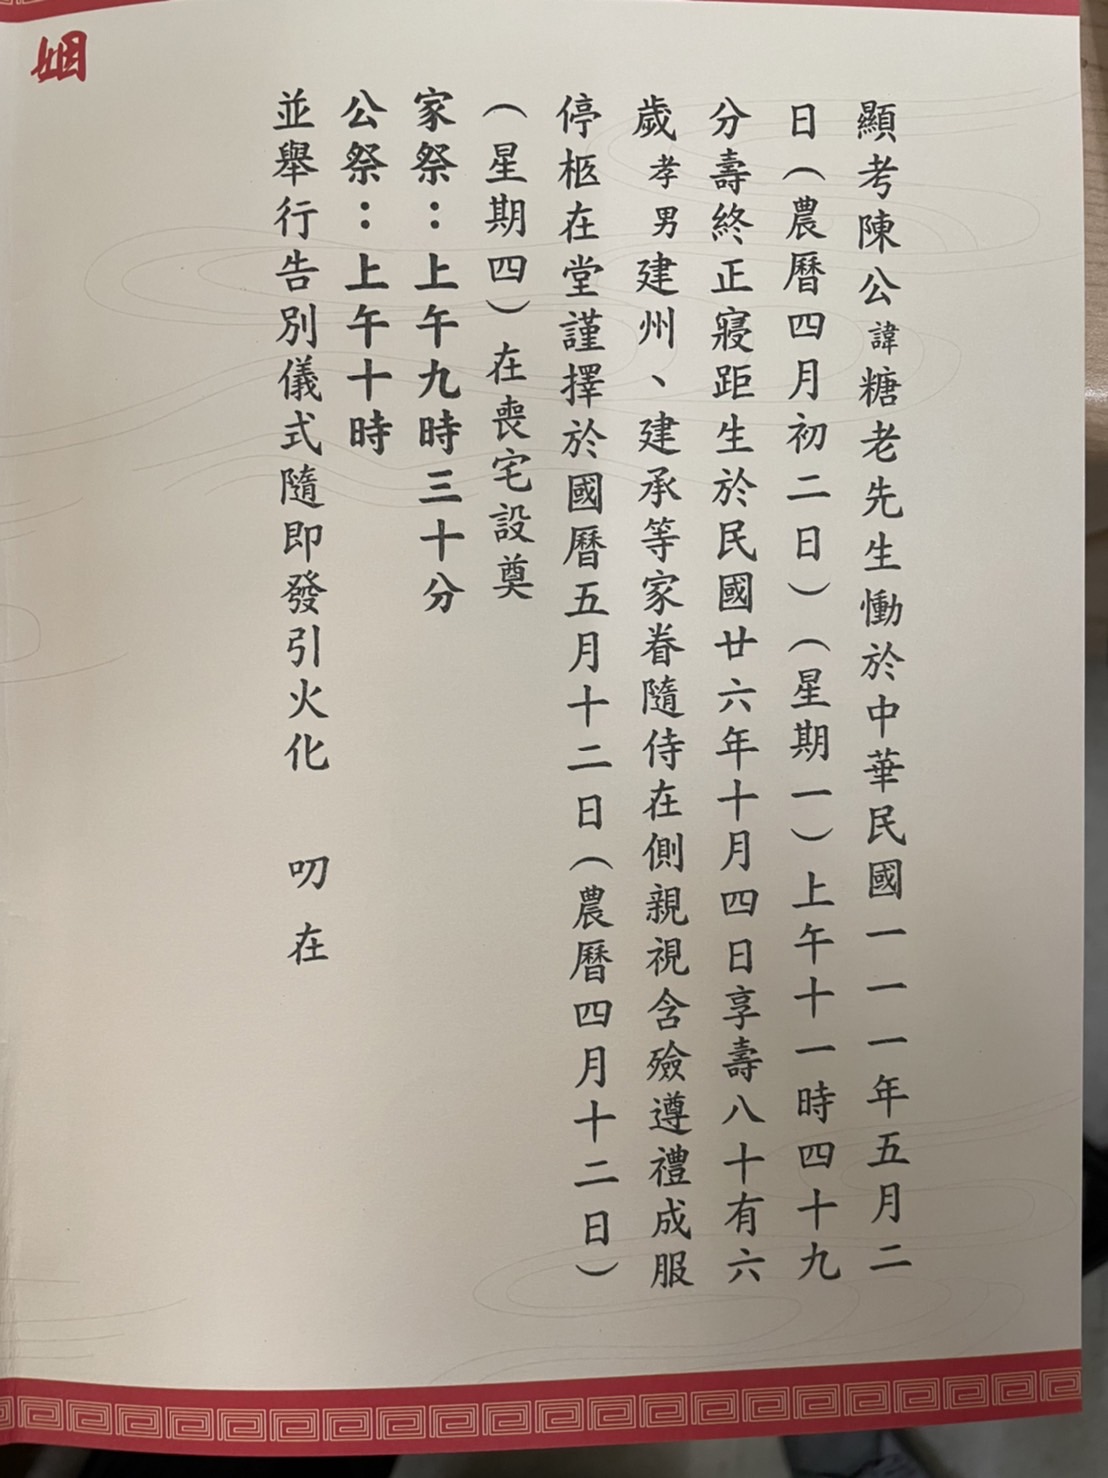 顯考陳公諱糖老先生慟於中華民國一一一年五月二
日（農曆四月初二日）（星期一）上午十一時四十九
分壽終正寢距生於民國廿六年十月四日享壽八十有六
歲孝男建州、建承等家眷隨侍在側親視含殮遵禮成服
停柩在堂謹擇於國曆五月十二日（農曆四月十二日）
（星期四）在喪宅設奠
家祭：上午九時三十分
公祭：上午十時
並舉行告別儀式隨即發引火化 叨在
姻